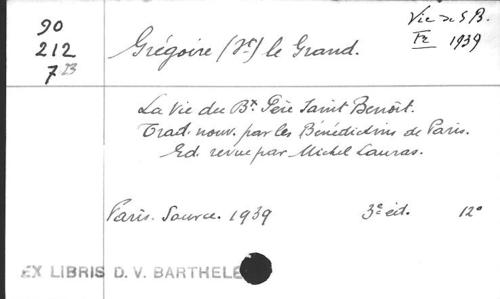 90
212
7 B
Grégoire (St) le Grand.
Vie de S B.
Fr 1939
La Vie du Bx. Père Saint Benoît.
Trad. nouv. par les Bénédictins de Paris.
Ed. revue par Michel Lauras.
Paris. Source. 1939 3e éd. 12°
EX LIBRIS D. V. BARTHELE